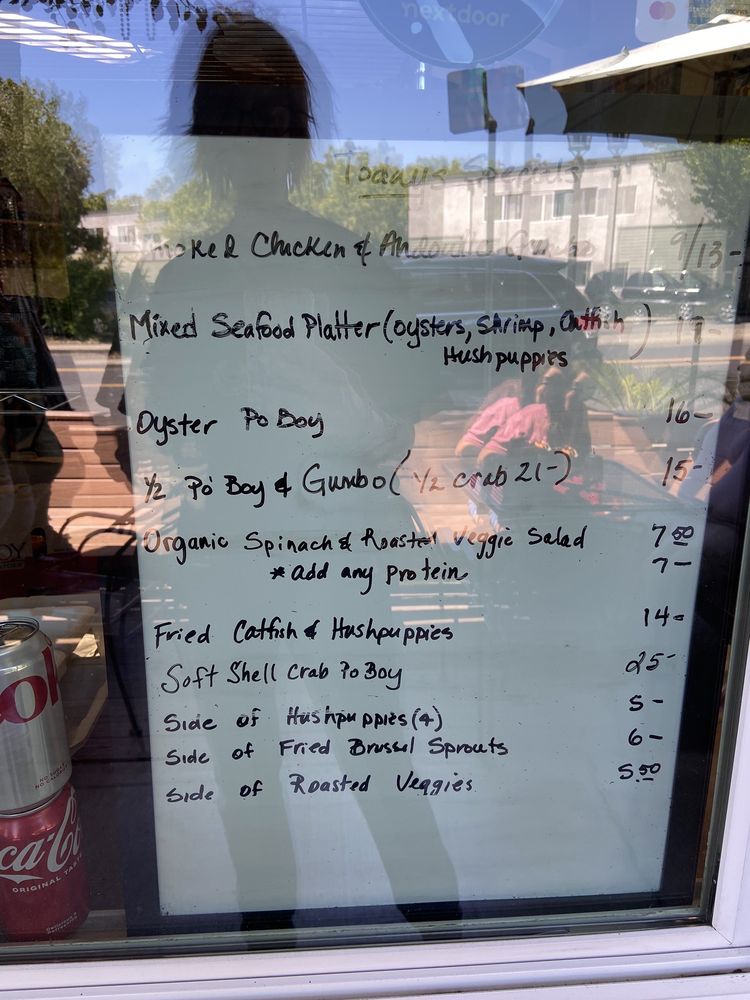 nextdoor
Today's Specials
Smoked Chicken & Andouille Gumbo 9/13-
Mixed Seafood Platter (oysters, shrimp, Catfish)
Hushpuppies
Oyster Po Boy 16-
1/2 Po' Boy & Gumbo (1/2 crab 21-) 15-
Organic Spinach & Roasted Veggie Salad 7 50
*add any protein 7-
Fried Catfish & Hushpuppies 14-
Soft Shell Crab Po Boy 25-
Side of Hushpuppies (4) 5-
Side of Fried Brussel Sprouts 6-
Side of Roasted Veggies 5.50
Coca-Co
ORIGINAL TAS